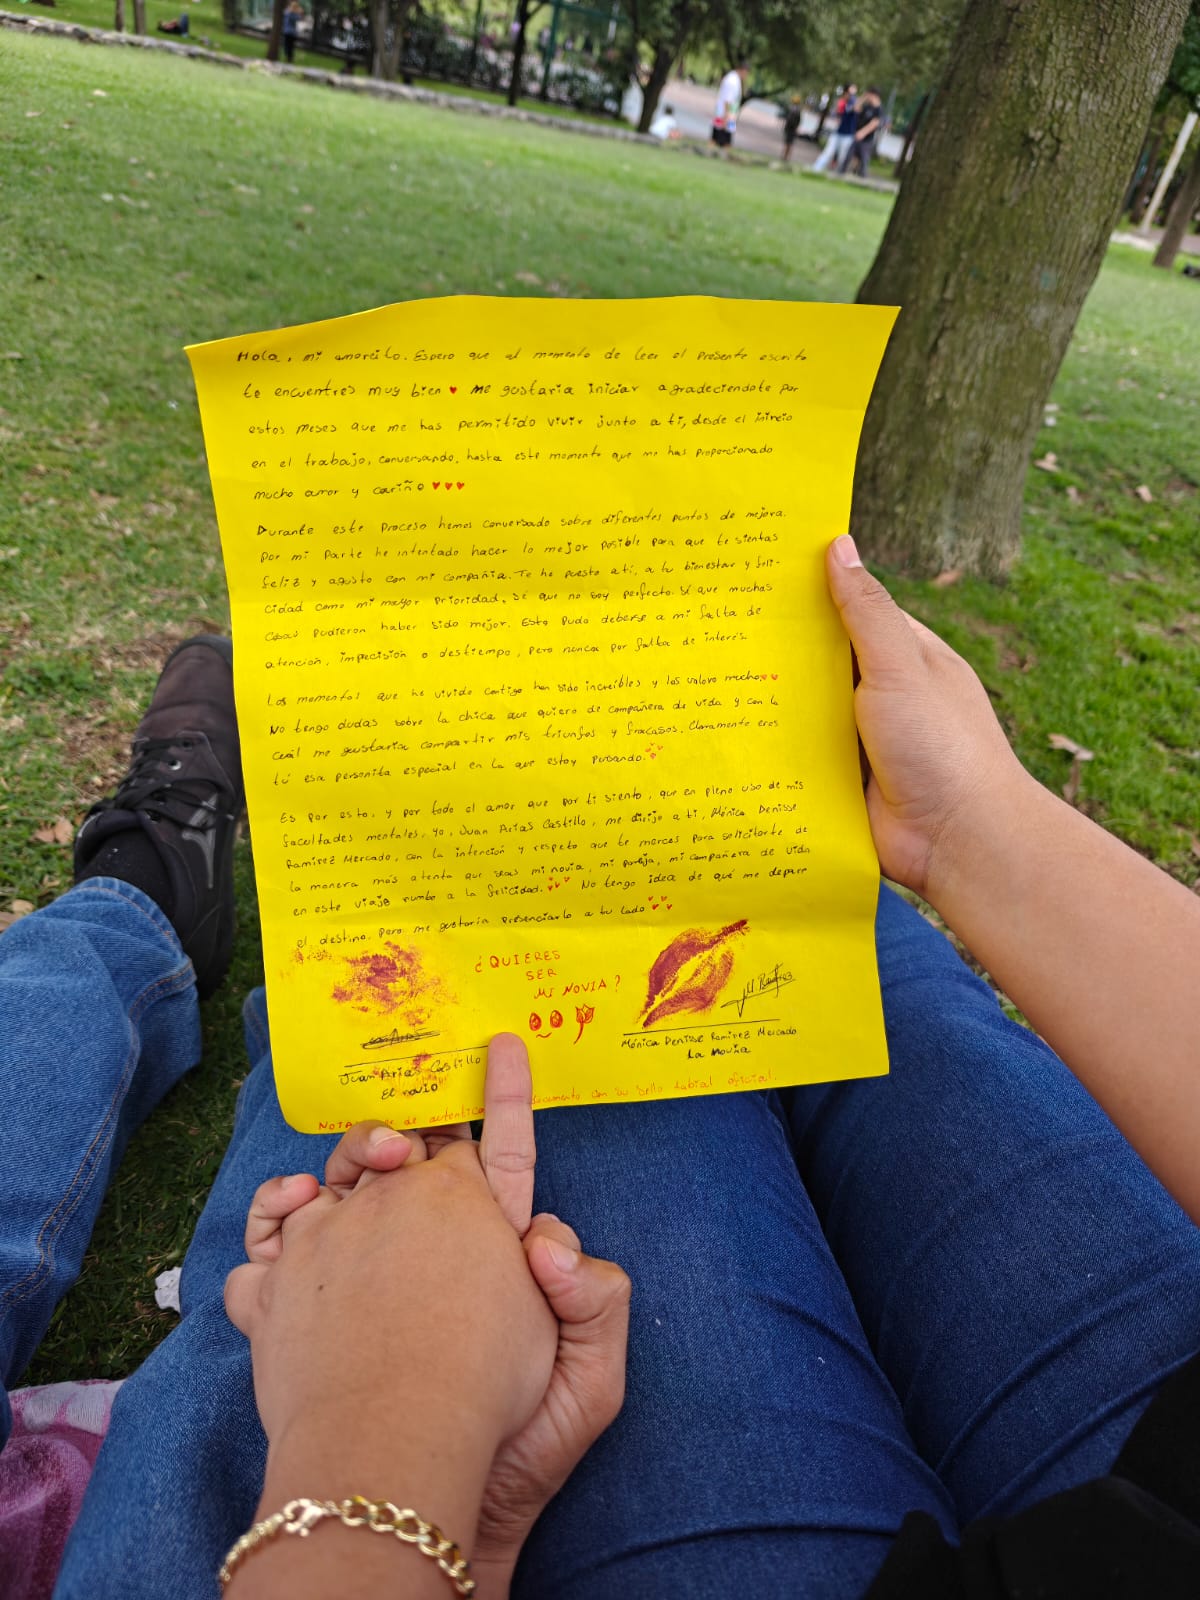 Hola, mi amorcito. Espero que al momento de leer el presente escrito
te encuentres muy bien ♥ Me gustaría iniciar agradeciendote por
estos meses que me has permitido vivir junto a ti, desde el inicio
en el trabajo, conversando, hasta este momento que me has proporcionado
mucho amor y cariño ♥♥♥
Durante este proceso hemos conversado sobre diferentes puntos de mejora.
Por mi parte he intentado hacer lo mejor posible para que te sientas
feliz y agusto con mi compañia. Te he puesto a ti, a tu bienestar y feli-
cidad como mi mayor prioridad. Sé que no soy perfecto. Sí que muchas
cosas pudieron haber sido mejor. Esto pudo deberse a mi falta de
atención, impecisión o destiempo, pero nunca por falta de interés.
Los momentos que he vivido contigo han sido increíbles y los valoro mucho ♥♥
No tengo dudas sobre la chica que quiero de compañera de vida y con la
cuál me gustaria compartir mis triunfos y fracasos. Claramente eres
tú esa personita especial en la que estoy pensando. ♥♥♥
Es por esto, y por todo el amor que por ti siento, que en pleno uso de mis
facultades mentales, yo, Juan Arias Castillo, me dirijo a ti, Mónica Denisse
Ramírez Mercado, con la intención y respeto que te merces para solicitarte de
la manera más atenta que seas mi novia, mi pareja, mi compañera de vida
en este viaje rumbo a la felicidad. ♥♥♥ No tengo idea de qué me depare
el destino, pero me gustaría presenciarlo a tu lado ♥♥♥
¿QUIERES
SER
MI NOVIA?
Juan Arias Castillo
El novio
M. Ramírez
Mónica Denisse Ramírez Mercado
La novia
NOTA de autentica documento con su sello labial oficial.